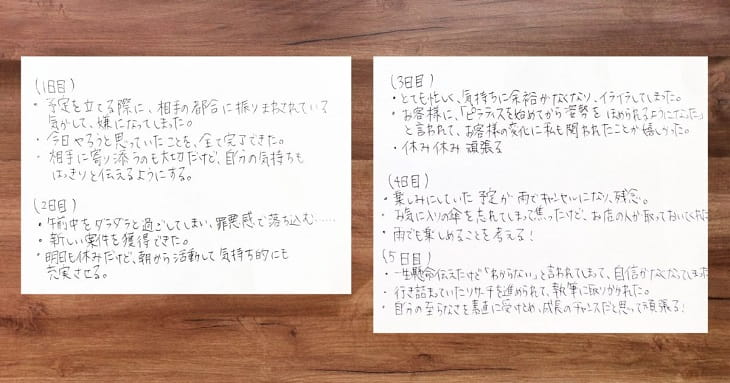 (1日目)
・予定を立てる際に、相手の都合に振りまわされている
気がして、嫌になってしまった。
・今日やろうと思っていたことを、全て完了できた。
・相手に寄り添うのも大切だけど、自分の気持ちも
はっきりと伝えるようにする。
(2日目)
・午前中をダラダラと過ごしてしまい、罪悪感で落ち込む……
・新しい案件を獲得できた。
・明日も休みだけど、朝から活動して気持ち的にも
充実させる。
(3日目)
・とても忙しく、気持ちに余裕がなくなり、イライラしてしまった。
・お客様に、「ピラティスを始めてから姿勢をほめられるようになった」
と言われて、お客様の変化に私も関われたことが嬉しかった。
・休み休み頑張る
(4日目)
・楽しみにしていた予定が雨でキャンセルになり、残念。
・お気に入りの傘を忘れてしまって焦ったけど、お店の人が取っておいてくれた
・雨でも楽しめることを考える!
(5日目)
・一生懸命伝えたけど「わからない」と言われてしまって、自信がなくなってしまった
・行き詰まっていたリサーチを進められて、執筆に取りかかれた。
・自分の至らなさを素直に受けとめ、成長のチャンスだと思って頑張る!